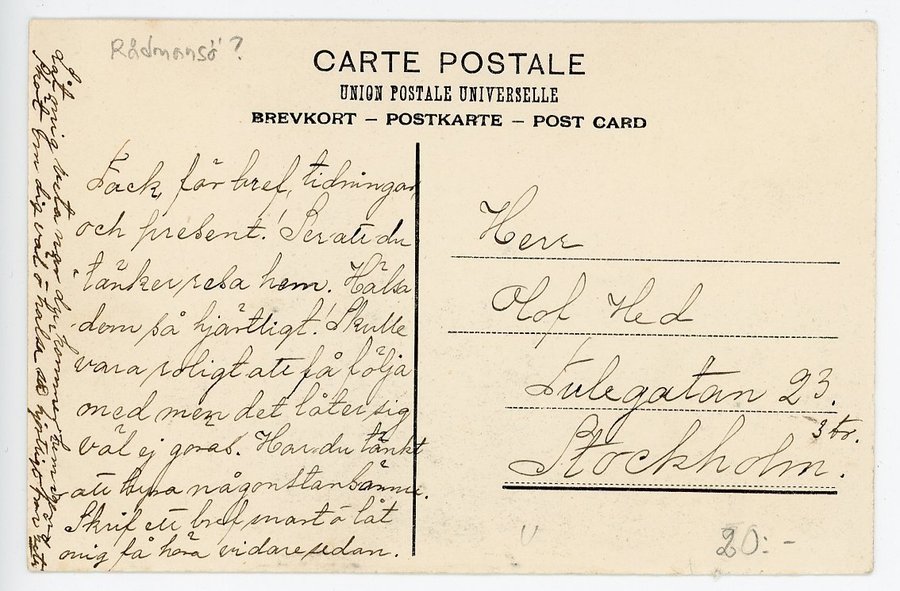 Rådmansö?
CARTE POSTALE
UNION POSTALE UNIVERSELLE
BREVKORT – POSTKARTE – POST CARD
Tack, för bref, tidningar,
och present! Ser att du
tänker resa hem. Hälsa
dem så hjärtligt! Skulle
vara roligt att få följa
med men det låter sig
väl ej göras. Har du tänkt
att hyra någonstans ännu.
Skrif ett bref snart o låt
mig få höra vidare sedan.
Låt mig veta när du kommer
Sköt om dig väl o hälsa så hjärtligt från
Herr
Olof Hed
Tulegatan 23.
3 tr.
Stockholm.
20:-